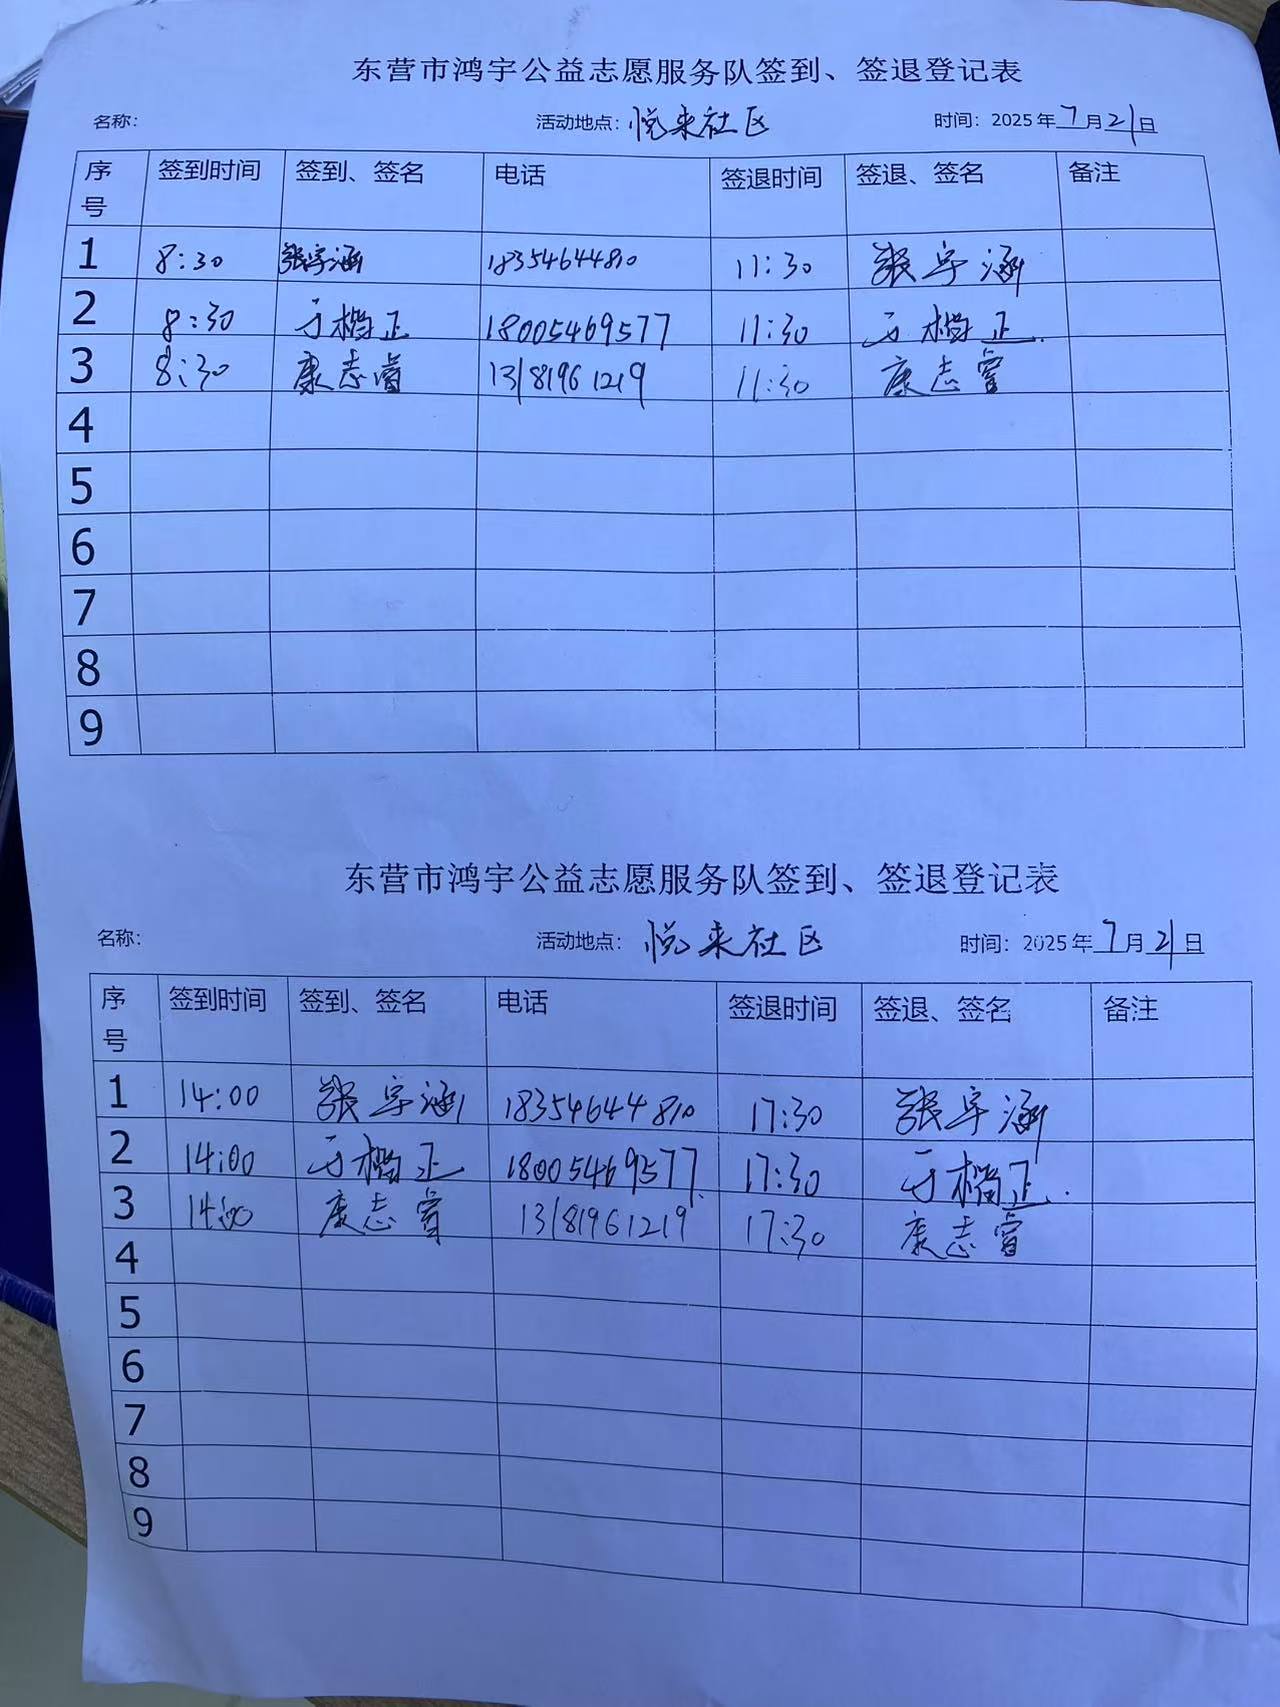 东营市鸿宇公益志愿服务队签到、签退登记表
名称： 活动地点：悦来社区 时间：2025年7月21日
序号 签到时间 签到、签名 电话 签退时间 签退、签名 备注
1 8:30 张宇涵 18354644810 11:30 张宇涵
2 8:30 于楷正 18005469577 11:30 于楷正
3 8:30 康志睿 13181961219 11:30 康志睿
4
5
6
7
8
9
东营市鸿宇公益志愿服务队签到、签退登记表
名称： 活动地点：悦来社区 时间：2025年7月21日
序号 签到时间 签到、签名 电话 签退时间 签退、签名 备注
1 14:00 张宇涵 18354644810 17:30 张宇涵
2 14:00 于楷正 18005469577 17:30 于楷正
3 14:00 康志睿 13181961219 17:30 康志睿
4
5
6
7
8
9